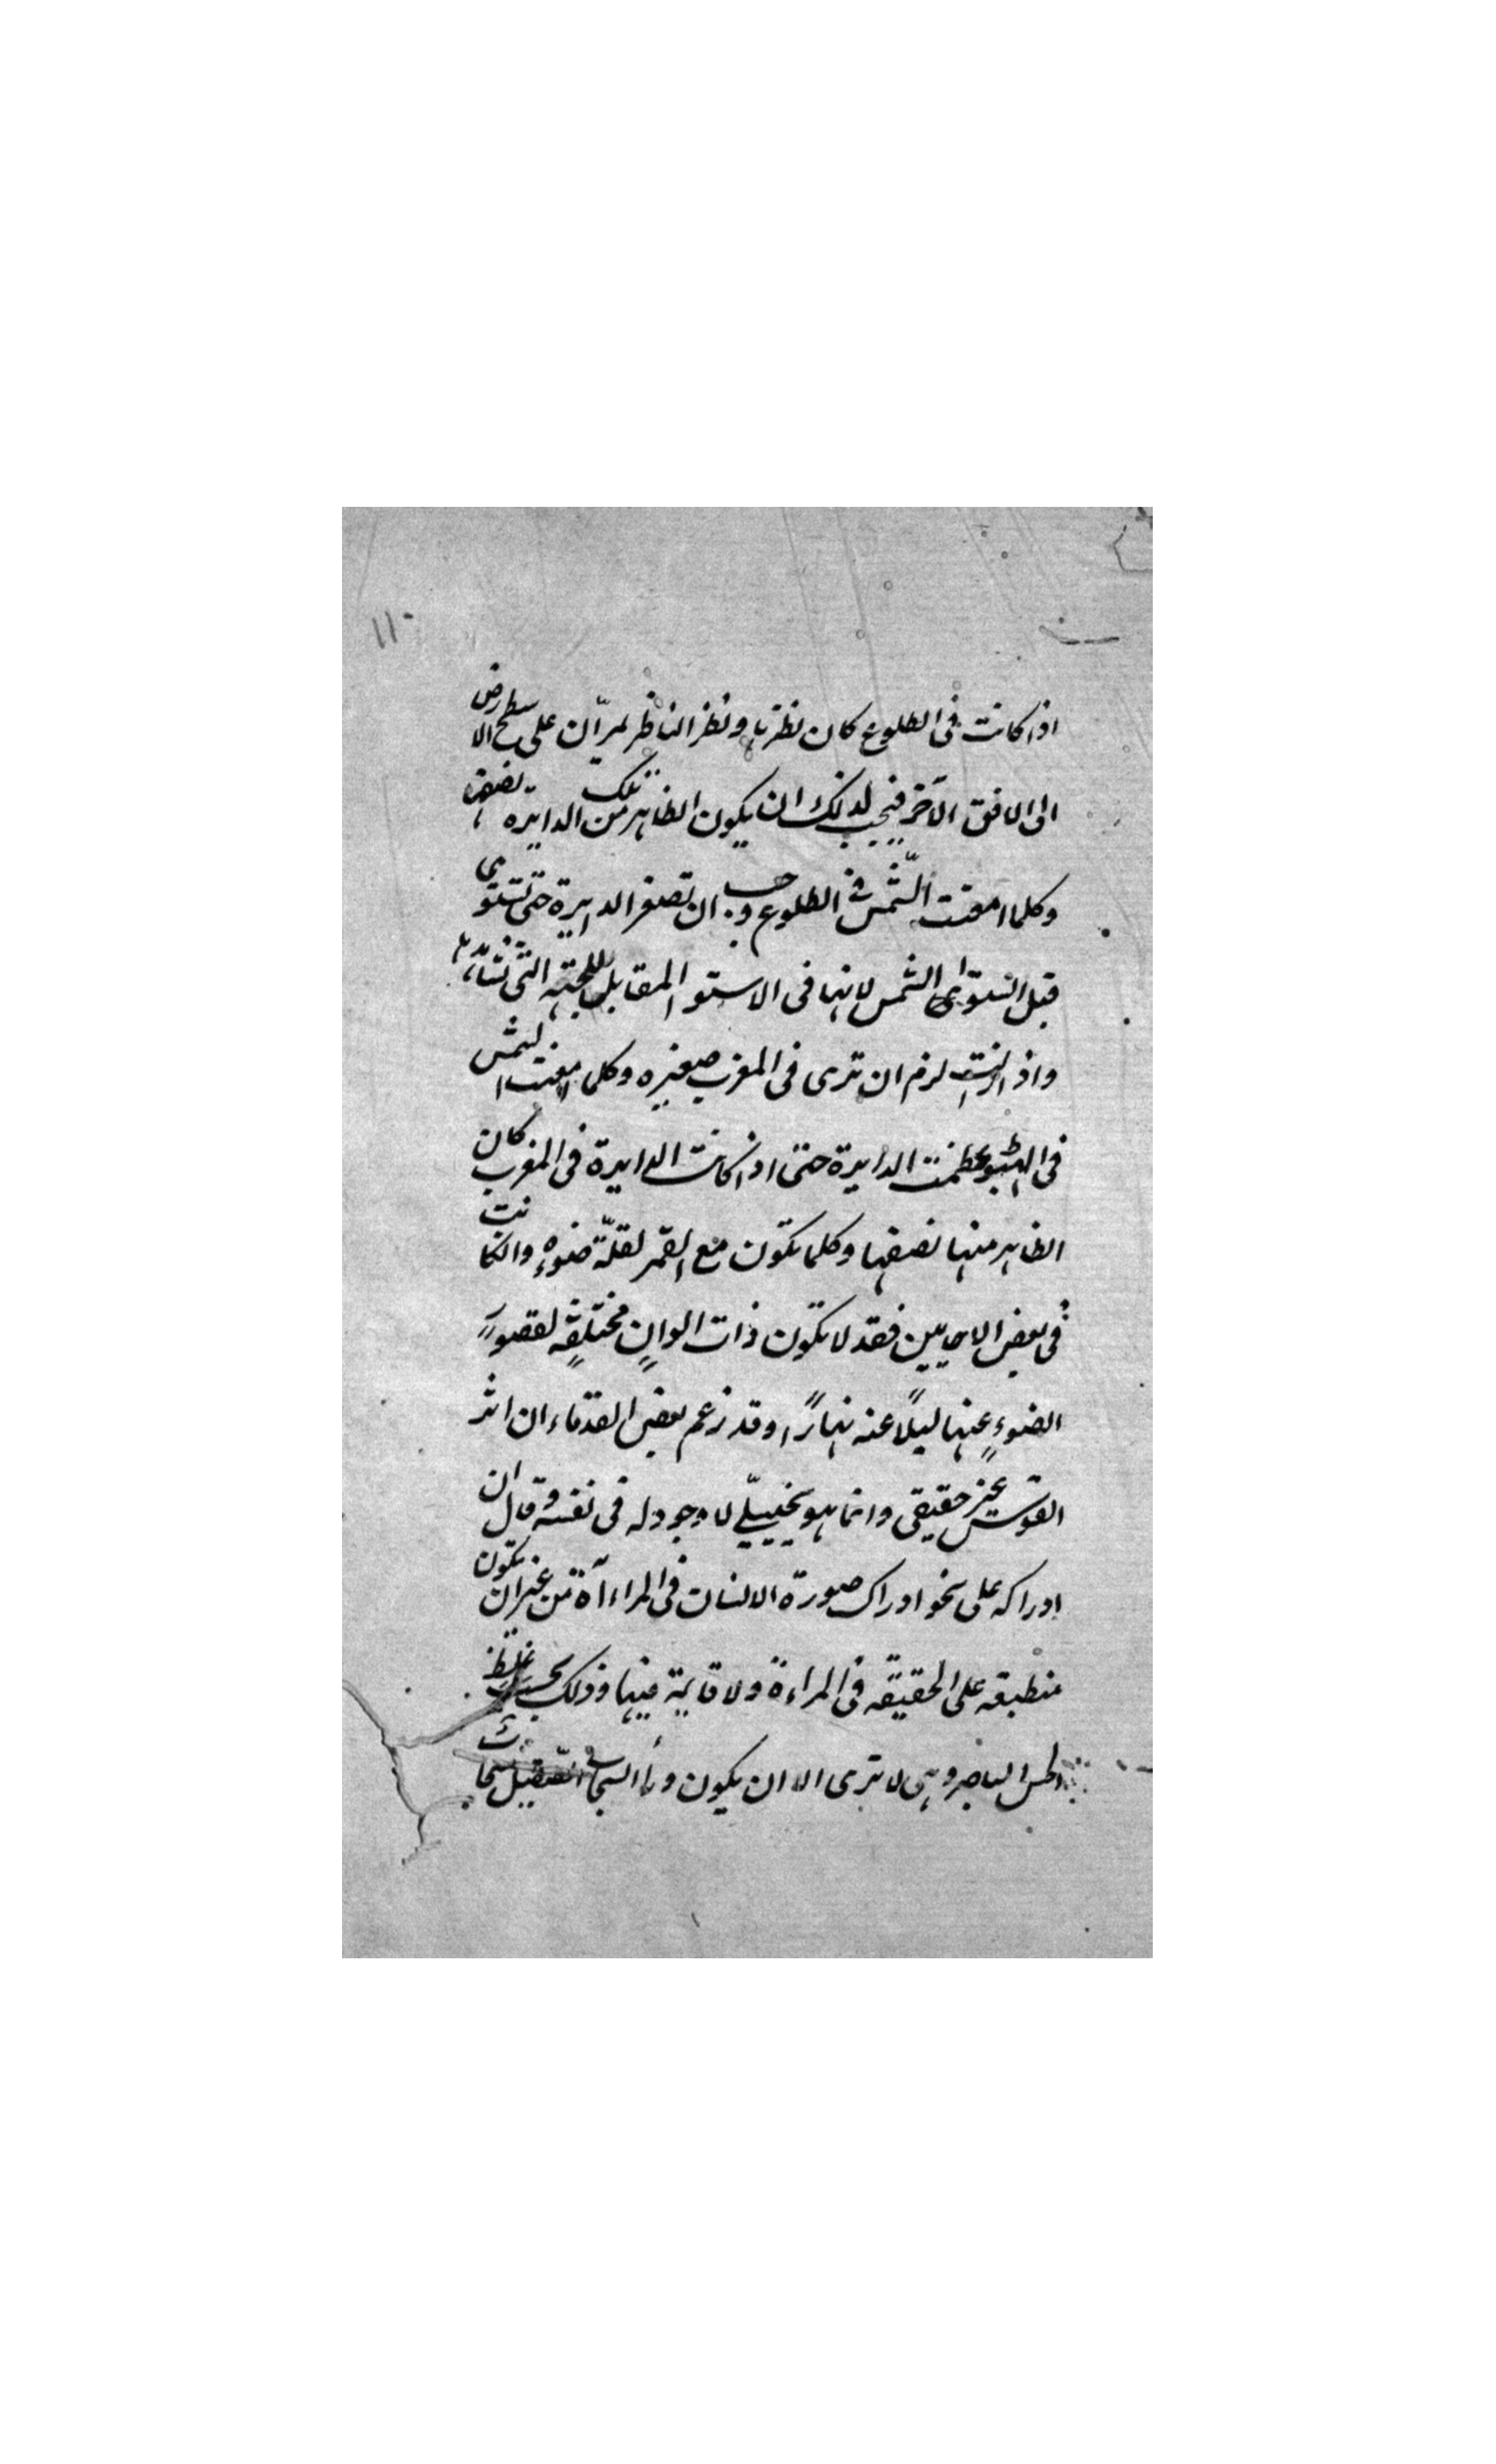 ١١٠
اذا كانت فى الطلوع كان نظرنا ونظر الناظر يمرّان على سطح الارض
الى الافق الآخر فيجب لذلك ان يكون الظاهر من تلك الدايرة نصفها
وكلما امعنت الشّمس فى الطلوع وجب ان تصغر الدايرة حتى تستوى
قبل الشمس لانها فى الاستوا المقابل للجهة التى
واذا لزم ان ترى فى المغرب صغيره وكلما امعنت الشمس
فى الهبوط عظمت الدايرة حتى اذا كانت الدايرة فى المغرب كان
الظاهر منها نصفها وكلما تكون مع القمر لقلّة ضوءهِ والكانت
فى بعض الاحايين فقد لا تكون ذات الوانٍ مختلفةٍ لقصور
الضوءِ عنها ليلًا عنه نهارًا وقد زعم بعض القدماء ان اثر
القوس غير حقيقى وانما هو تخييلىّ لا وجود له فى نفسه وقال ان
ادراكه على نحو ادراك صورة الانسان فى المراءآة من غير ان تكون
منطبقه على الحقيقة فى المراءة ولا قايمة فيها وذلك بحسب غلط
الحس الباصر وهى لا ترى الا ان يكون ورأ السحاب الصّقيل سحاب